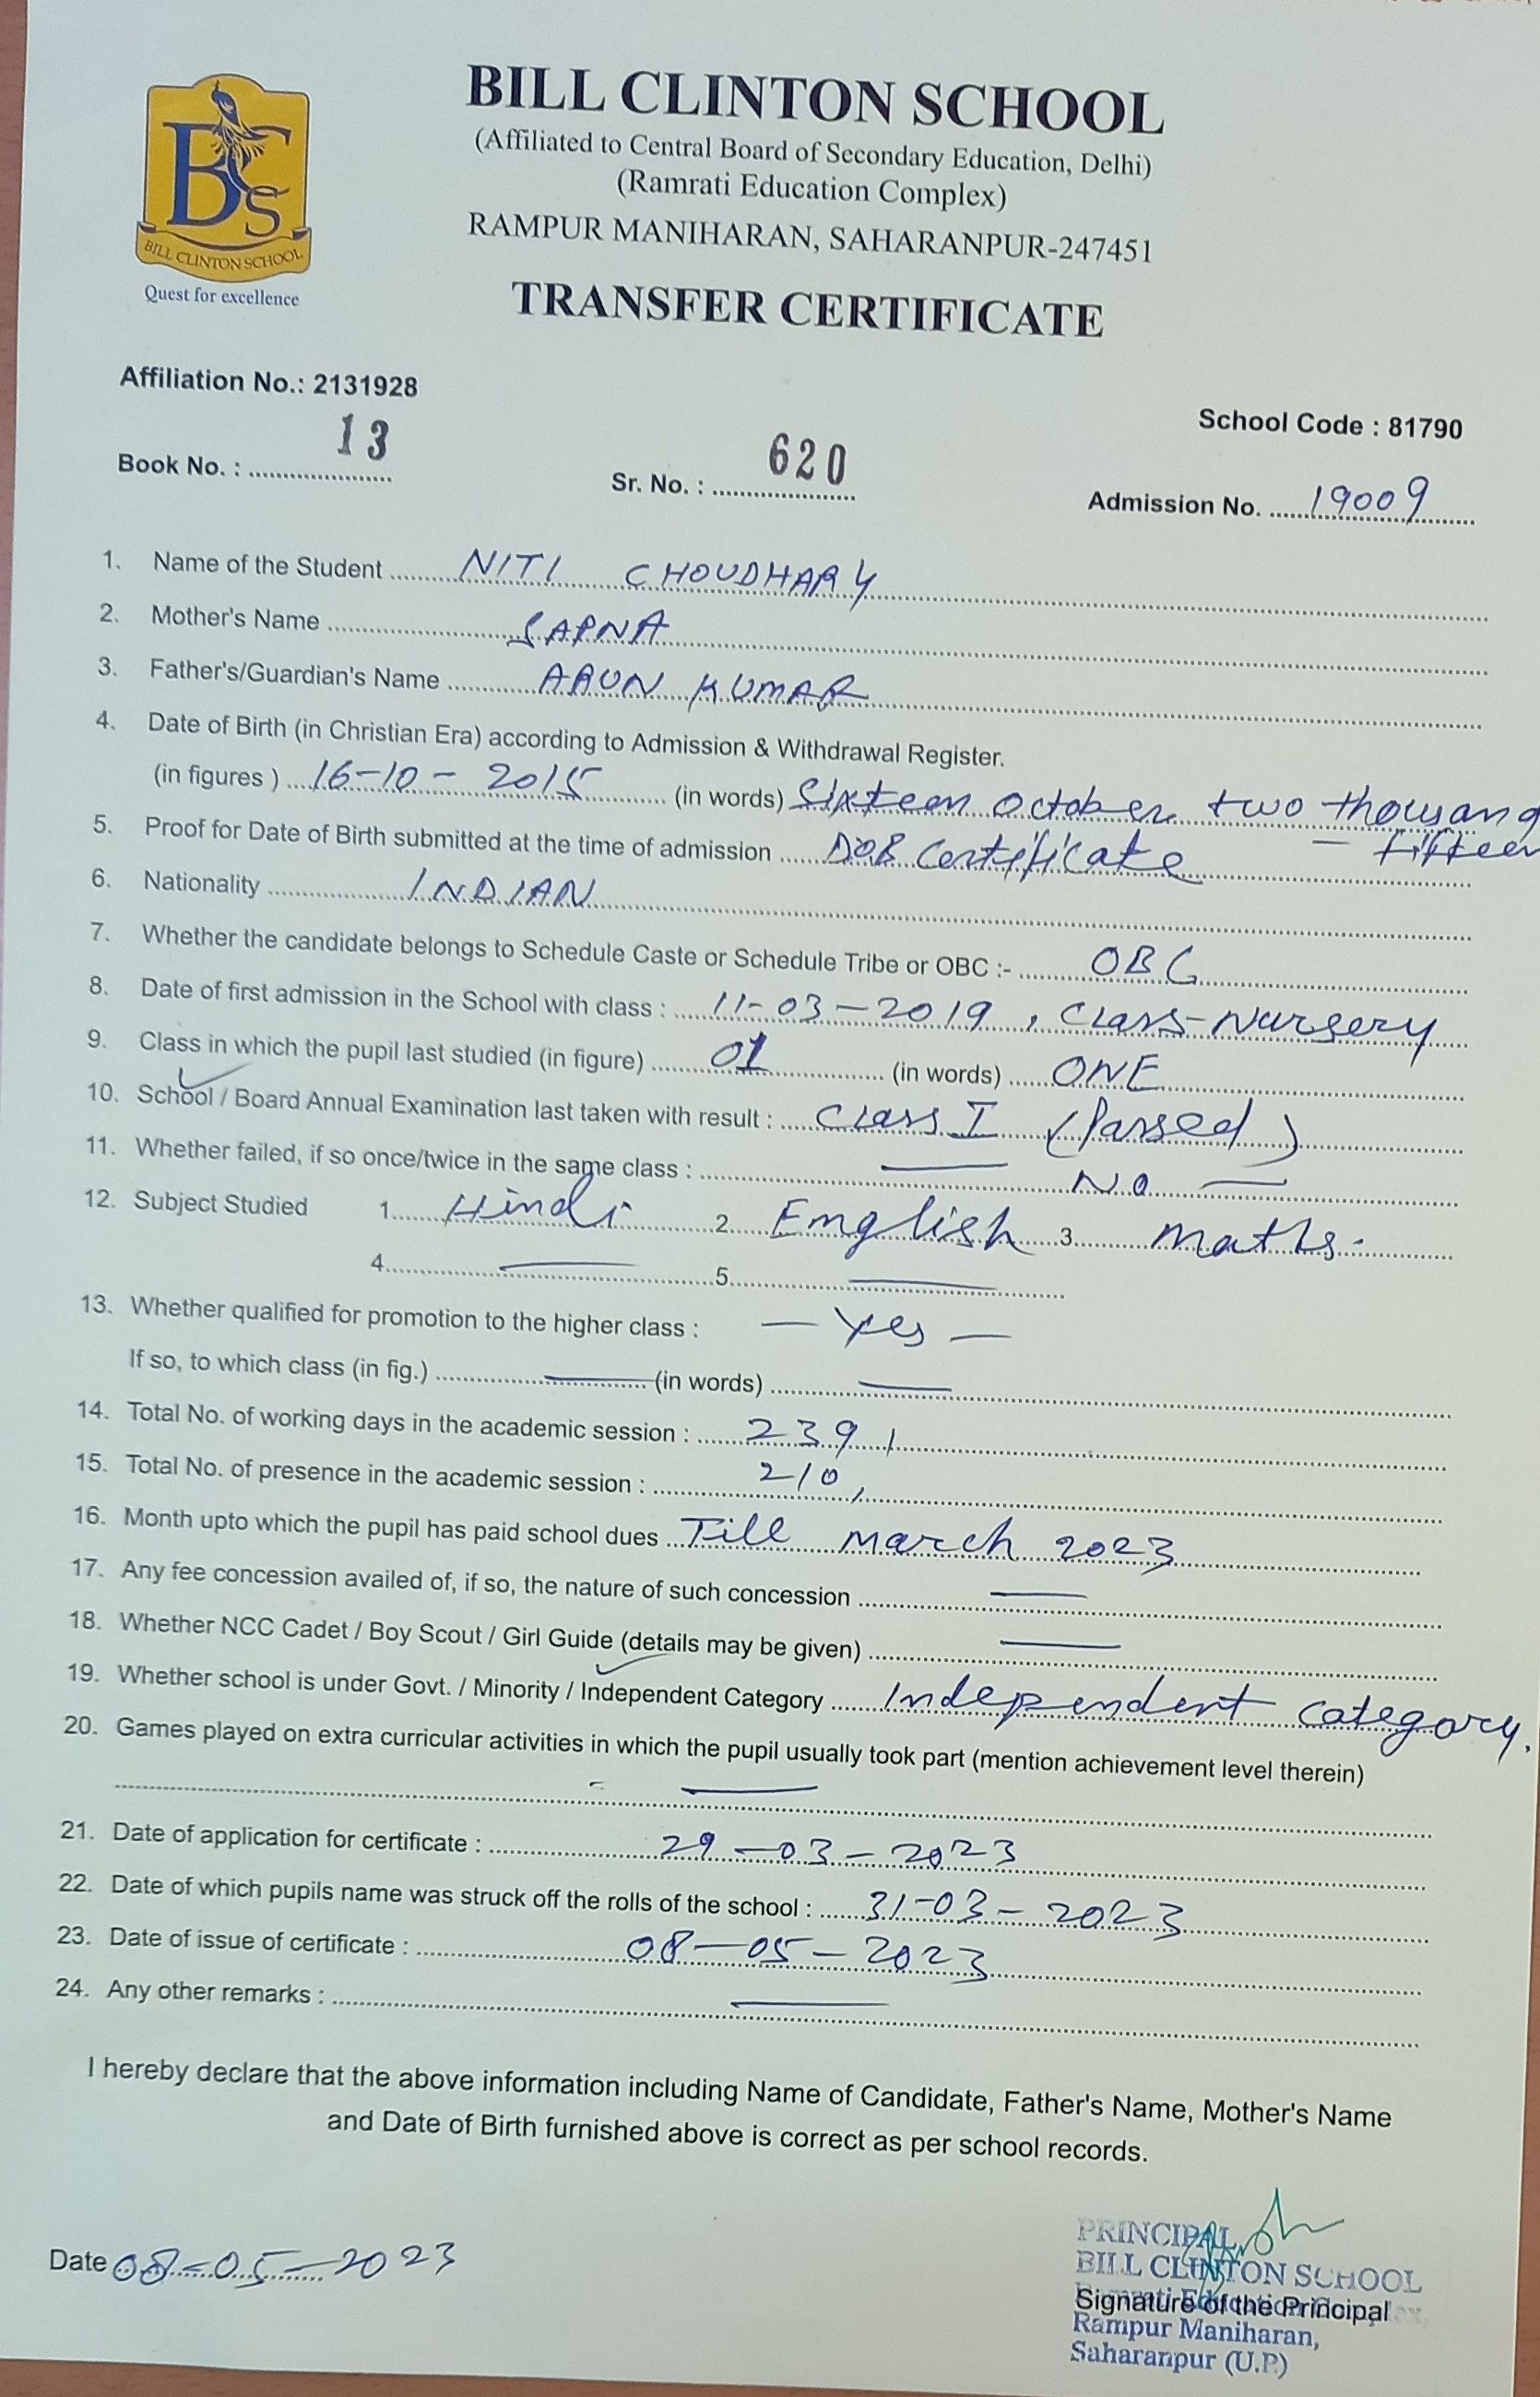 BILL CLINTON SCHOOL
(Affiliated to Central Board of Secondary Education, Delhi)
(Ramrati Education Complex)
RAMPUR MANIHARAN, SAHARANPUR-247451
BCS
BILL CLINTON SCHOOL
Quest for excellence
TRANSFER CERTIFICATE
Affiliation No.: 2131928
School Code : 81790
Book No. : 13 Sr. No. : 620 Admission No. 19009
1. Name of the Student NITI CHOUDHARY
2. Mother's Name SAPNA
3. Father's/Guardian's Name ARUN KUMAR
4. Date of Birth (in Christian Era) according to Admission & Withdrawal Register.
(in figures ) 16-10-2015 (in words) Sixteen October two thousand
- fifteen
5. Proof for Date of Birth submitted at the time of admission DOB Certificate
6. Nationality INDIAN
7. Whether the candidate belongs to Schedule Caste or Schedule Tribe or OBC :- OBC
8. Date of first admission in the School with class : 11-03-2019, Class-Nursery
9. Class in which the pupil last studied (in figure) 01 (in words) ONE
10. School / Board Annual Examination last taken with result : Class I (Passed)
11. Whether failed, if so once/twice in the same class : — No —
12. Subject Studied 1. Hindi 2. English 3. Maths.
4. — 5. —
13. Whether qualified for promotion to the higher class : — Yes —
If so, to which class (in fig.) — (in words) —
14. Total No. of working days in the academic session : 239
15. Total No. of presence in the academic session : 210
16. Month upto which the pupil has paid school dues Till March 2023
17. Any fee concession availed of, if so, the nature of such concession —
18. Whether NCC Cadet / Boy Scout / Girl Guide (details may be given) —
19. Whether school is under Govt. / Minority / Independent Category Independent category.
20. Games played on extra curricular activities in which the pupil usually took part (mention achievement level therein)
—
21. Date of application for certificate : 29-03-2023
22. Date of which pupils name was struck off the rolls of the school : 31-03-2023
23. Date of issue of certificate : 08-05-2023
24. Any other remarks : —
I hereby declare that the above information including Name of Candidate, Father's Name, Mother's Name
and Date of Birth furnished above is correct as per school records.
Date 08-05-2023
PRINCIPAL
BILL CLINTON SCHOOL
Signature of the Principal
Ramrati Education
Rampur Maniharan,
Saharanpur (U.P.)